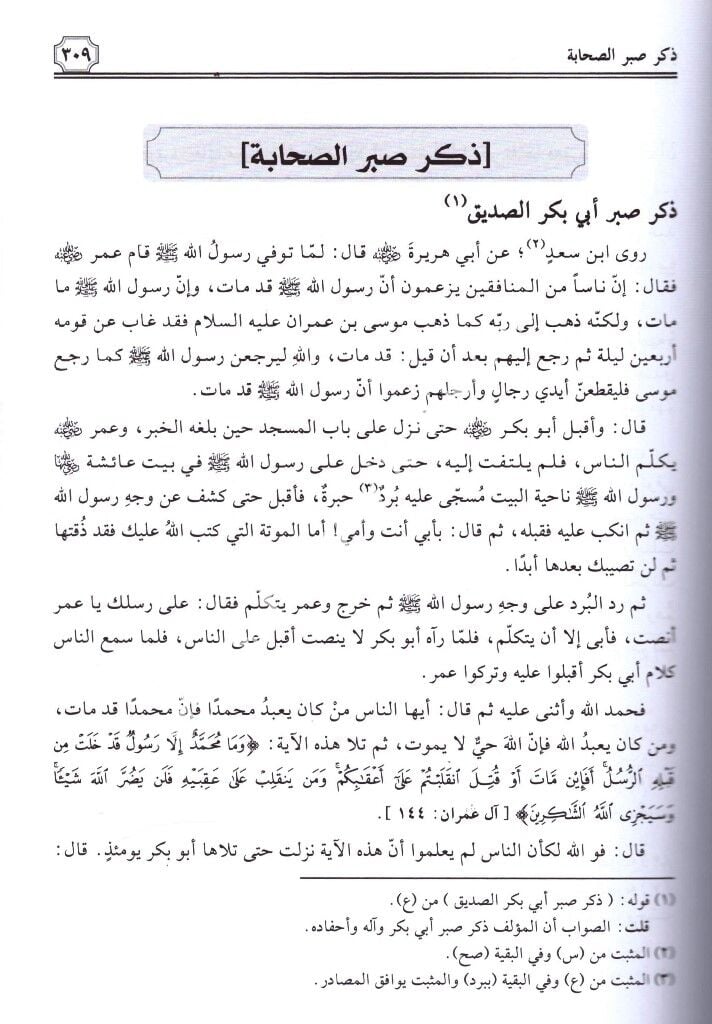 ذكر صبر الصحابة
٣٠٩
[ذكر صبر الصحابة]
ذكر صبر أبي بكر الصديق(١)
روى ابن سعدٍ(٢)؛ عن أبي هريرةَ ﵁ قال: لمّا توفي رسولُ الله ﷺ قام عمر ﵁
فقال: إنّ ناساً من المنافقين يزعمون أنّ رسول الله ﷺ قد مات، وإنّ رسول الله ﷺ ما
مات، ولكنّه ذهب إلى ربّه كما ذهب موسى بن عمران عليه السلام فقد غاب عن قومه
أربعين ليلة ثم رجع إليهم بعد أن قيل: قد مات، واللهِ ليرجعن رسول الله ﷺ كما رجع
موسى فليقطعنّ أيدي رجالٍ وأرجلهم زعموا أنّ رسول الله ﷺ قد مات.
قال: وأقبل أبو بكر ﵁ حتى نزل على باب المسجد حين بلغه الخبر، وعمر ﵁
يكلّم الناس، فلم يلتفت إليه، حتى دخل على رسول الله ﷺ في بيت عائشة ﵂
ورسول الله ﷺ ناحية البيت مُسجّى عليه بُردٌ(٣) حبرةٌ، فأقبل حتى كشف عن وجهِ رسول الله
ﷺ ثم انكب عليه فقبله، ثم قال: بأبي أنت وأمي! أما الموتة التي كتب اللهُ عليك فقد ذُقتها
ثم لن تصيبك بعدها أبدًا.
ثم رد البُرد على وجهِ رسول الله ﷺ ثم خرج وعمر يتكلّم فقال: على رسلك يا عمر
أنصت، فأبى إلا أن يتكلّم، فلمّا رآه أبو بكر لا ينصت أقبل على الناس، فلما سمع الناس
كلام أبي بكر أقبلوا عليه وتركوا عمر.
فحمد الله وأثنى عليه ثم قال: أيها الناس منْ كان يعبدُ محمدًا فإنّ محمدًا قد مات،
ومن كان يعبدُ الله فإنّ اللهَ حيٌّ لا يموت، ثم تلا هذه الآية: ﴿وَمَا مُحَمَّدٌ إِلَّا رَسُولٌ قَدْ خَلَتْ مِن
قَبْلِهِ ٱلرُّسُلُ ۚ أَفَإِي۟ن مَّاتَ أَوْ قُتِلَ ٱنقَلَبْتُمْ عَلَىٰٓ أَعْقَـٰبِكُمْ ۚ وَمَن يَنقَلِبْ عَلَىٰ عَقِبَيْهِ فَلَن يَضُرَّ ٱللَّهَ شَيْـًٔا ۗ
وَسَيَجْزِى ٱللَّهُ ٱلشَّـٰكِرِينَ﴾ [ آل عمران: ١٤٤ ].
قال: فو الله لكأن الناس لم يعلموا أنّ هذه الآية نزلت حتى تلاها أبو بكر يومئذٍ. قال:
(١) قوله: ( ذكر صبر أبي بكر الصديق ) من (ع).
قلت: الصواب أن المؤلف ذكر صبر أبي بكر وآله وأحفاده.
(٢) المثبت من (س) وفي البقية (صح).
(٣) المثبت من (ع) وفي البقية (ببرد) والمثبت يوافق المصادر.